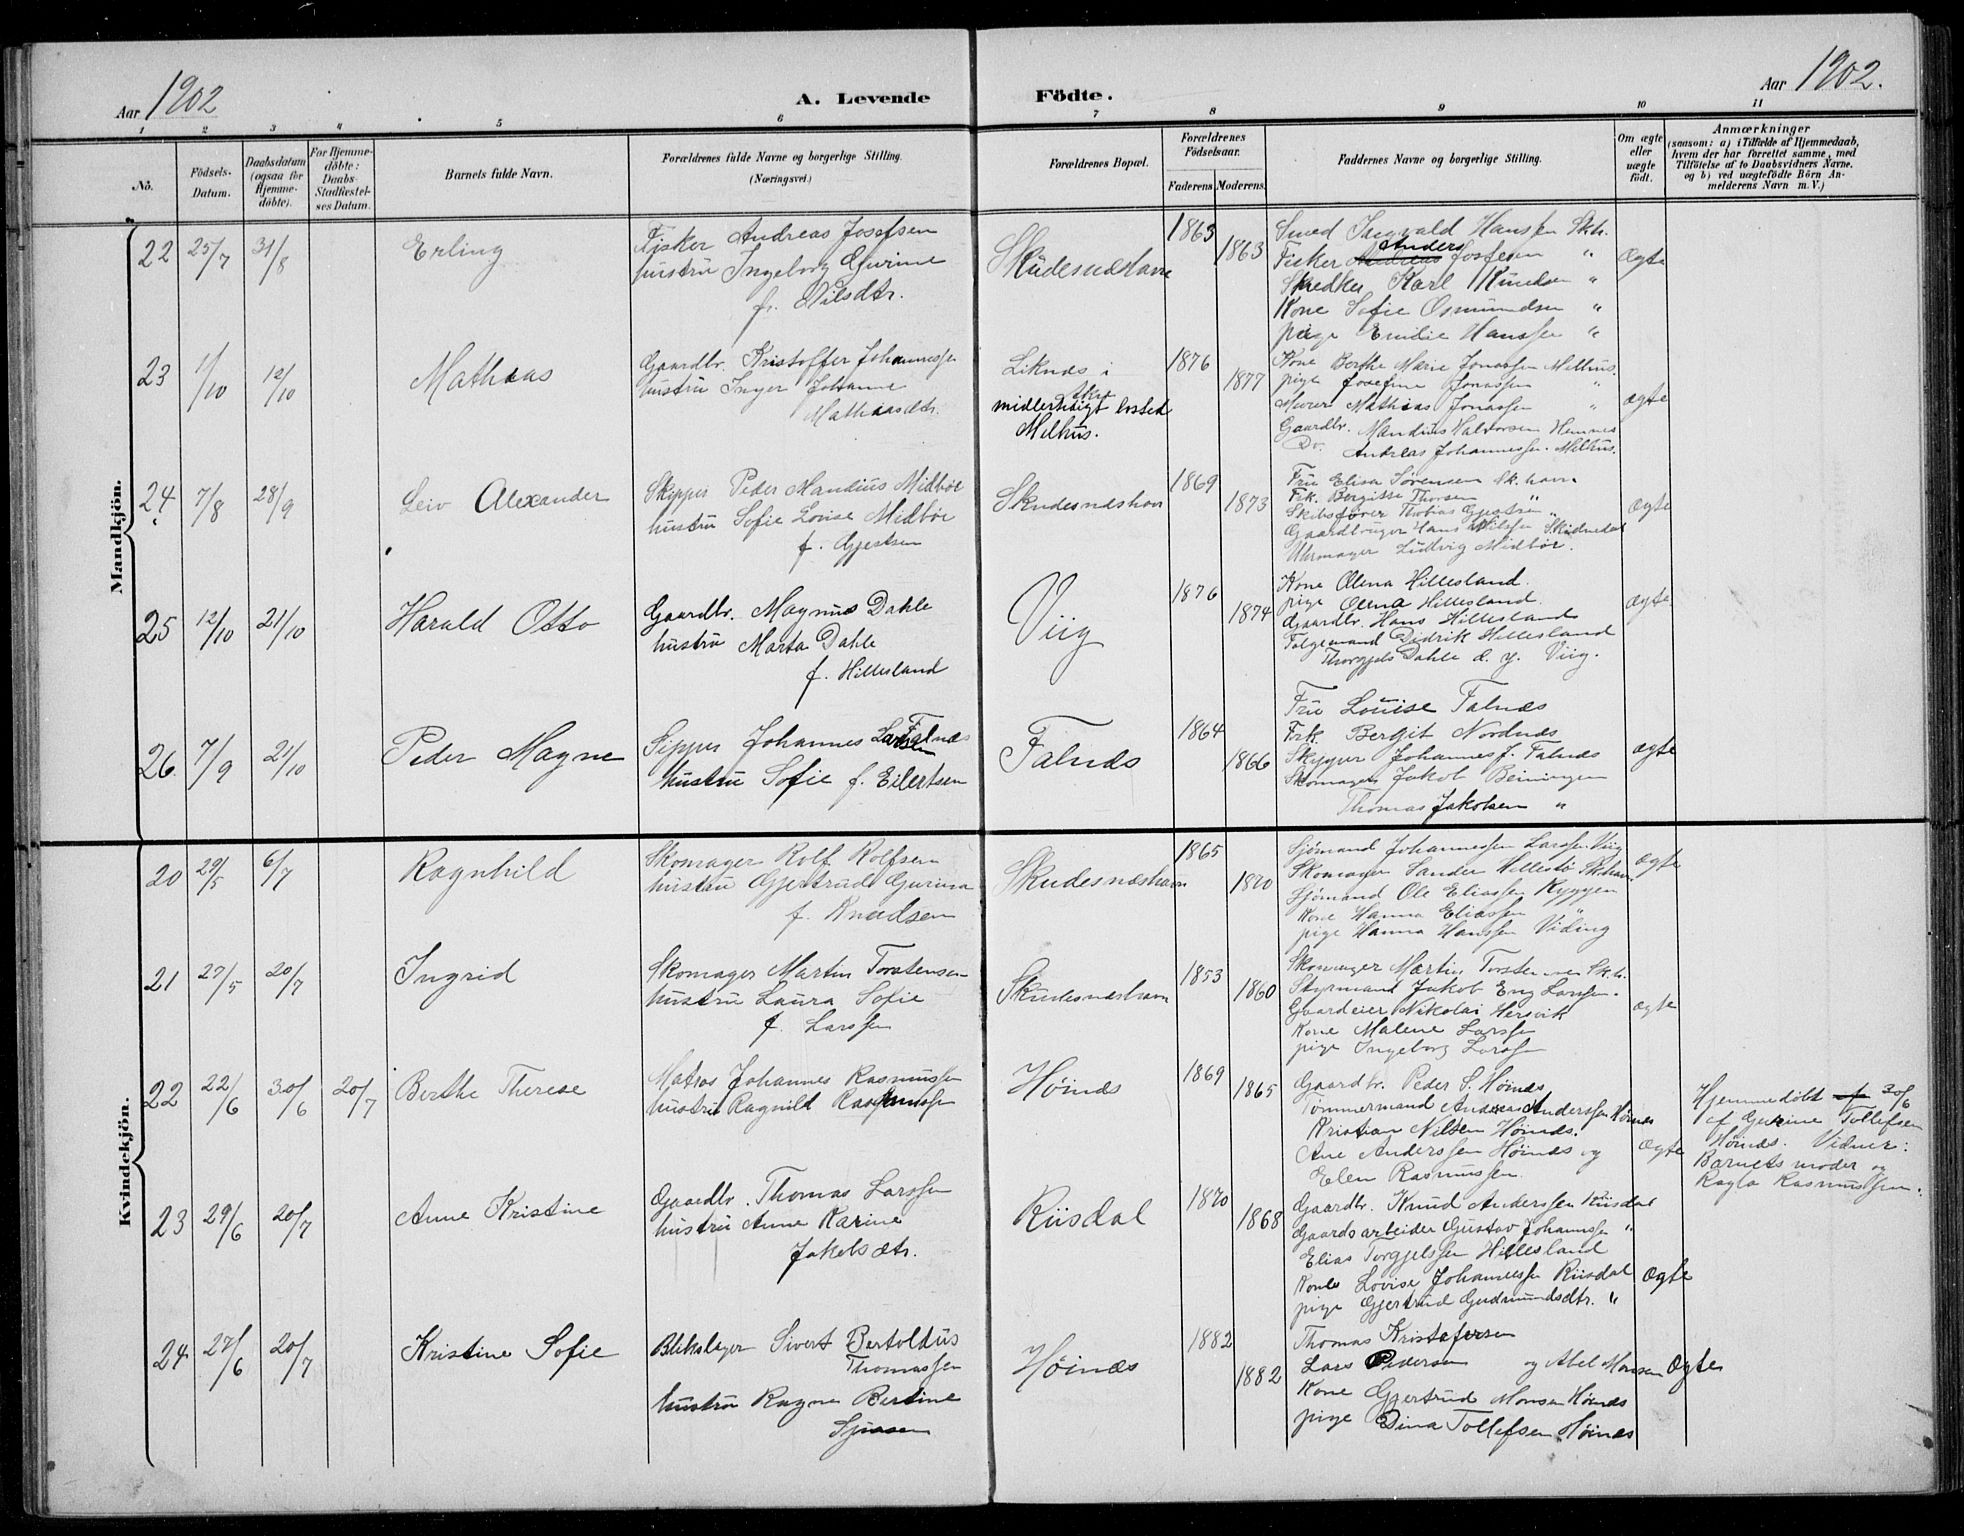 Aar 1902
A. Levende Födte.
Aar 1902.
1 2 3 4 5 6 7 8 9 10 11
No.
Födsels-Datum.
Daabsdatum (ogsaa for Hjemme-döbte).
For Hjemme-döbte: Daabs Stadfæstel-ses Datum.
Barnets fulde Navn.
Forældrenes fulde Navne og borgerlige Stilling.
(Næringsvei.)
Forældrenes Bopæl.
Forældrenes Födselsaar.
Faderens Moderens.
Faddernes Navne og borgerlige Stilling.
Om ægte eller uægte födt.
Anmærkninger
(saasom: a) i Tilfælde af Hjemmedaab,
hvem der har forrettet samme, med
Tilföielse af to Daabsvidners Navne.
og b) ved uægtefödte Börn An-
melderens Navn m. V.)
Mandkjön.
22 25/7 31/8 Erling
Fisker Andreas Josefsen
hustru Ingeborg Gurine
f. Nilsdtr.
Skudesnæshavn
1863 1863
Smed Ingvald Hanssen Skh.
Anders
Fisker Andreas Josefsen "
Karl Knudsen "
Kone Sofie Osmundsen "
pige Emilie Hanssen "
Ægte
23 11/10 12/10 Mathias
Gaardbr. Kristoffer Johannessen
hustru Inger Johanne
Mathiasdtr.
Liknæs i
midlertidigt losted
Melhus.
1876 1877
Kone Berthe Marie Jonassen Melhus.
pige Josefine Jonassen "
Murer Mathias Jonassen "
Gaardbr. Mandius Halvorsen Hemnes
Do. Andreas Johannessen Melhus.
ægte
24 7/8 28/9 Leiv Alexander
Skipper Peder Mandius Midbøe
hustru Sofie Lovise Midbøe
f. Gjestsen
Skudesnæshavn
1869 1873
Fru Elisa Sørensen Sk.havn
Frk. Bergitte Thorsen "
Skibsfører Thobias Gjestsen "
Gaardbruger Hans Nilsen
Uhrmager Ludvig Midbøe.
Ægte
25 12/10 21/10 Harald Otto
Gaardbr. Magnus Dahle
hustru Marta Dahle
f. Hillesland
Viig
1876 1874
Kone Olena Hillesland.
pige Olena Hillesland.
Gaardbr. Hans Hillesland
Folgemand Didrik Hillesland
Dahle d. y. Viig.
ægte
26 7/9 21/10 Peder Magne
Johannes Larsen Falnæs
hustru Sofie f. Eilertsen
Falnæs
1864 1866
Fru Louise Falnæs
Frk Bergit Nordnæs
Skipper Johannes J. Falnæs
Skomager Jakob Beiningen
Thomas Jakobsen "
ægte
Kvindekjön.
20 29/5 6/7 Ragnhild
Skomager Rolf Rolfsen
hustru Gjertrud Gurina
f. Knudsen
Skudesnæshavn
1865 1870
Sjömand Johannessen Larssen Viig
Skomager Sander Hillestø
Sjömand Ole Eliassen Ryggen
Kone Hanna Eliassen "
pige Hanna Hanssen Viding
ægte
21 27/5 20/7 Ingrid
Skomager Martin Torstensen
hustru Laura Sofie
f. Larssen
Skudesnæshavn
1853 1860
Skomager Martin Torstensen Sk.h.
Styrmand Jakob Eng Larssen.
Gaardeier Nikolai Hersvik
Kone Malene Larssen
pige Ingeborg Larssen
ægte
22 22/6 30/6 20/7 Berthe Therese
Matros Johannes Rasmussen
hustru Ragnild Rasmussen
Høinæs
1869 1865
Gaardbr. Peder S. Høinæs
Tømmermand Anderssen Høinæs
Kristian Nilsen Høinæs.
Ane Anderssen Høinæs og
Elen Rasmussen.
Ægte
Hjemmedöbt 30/6
af Gurine Tollefsen
Høinæs. Vidner:
Barnets moder og
Ragla Rasmussen.
23 29/6 20/7 Anne Kristine
Gaardbr. Thomas Larssen
hustru Anne Karine
Jakobsdtr.
Riisdal
1870 1868
Gaardbr. Knud Anderssen Riisdal
Gaardsarbeider Gustav Johannssen "
Elias Torgjelssen Hillesland
Kone Lovise Johannessen Riisdal
pige Gjertrud Gudmundsdtr. "
Ægte
24 27/6 20/7 Kristine Sofie
Blikslager Sivert Bertoldus
Thomassen
hustru Ragna Bertine
Høinæs
1882 1882
Thomas Kristofersen
Lars Pedersen og Abel Monsen
Kone Gjertrud Monsen Høinæs
pige Dina Tollefsen Høinæs
Ægte